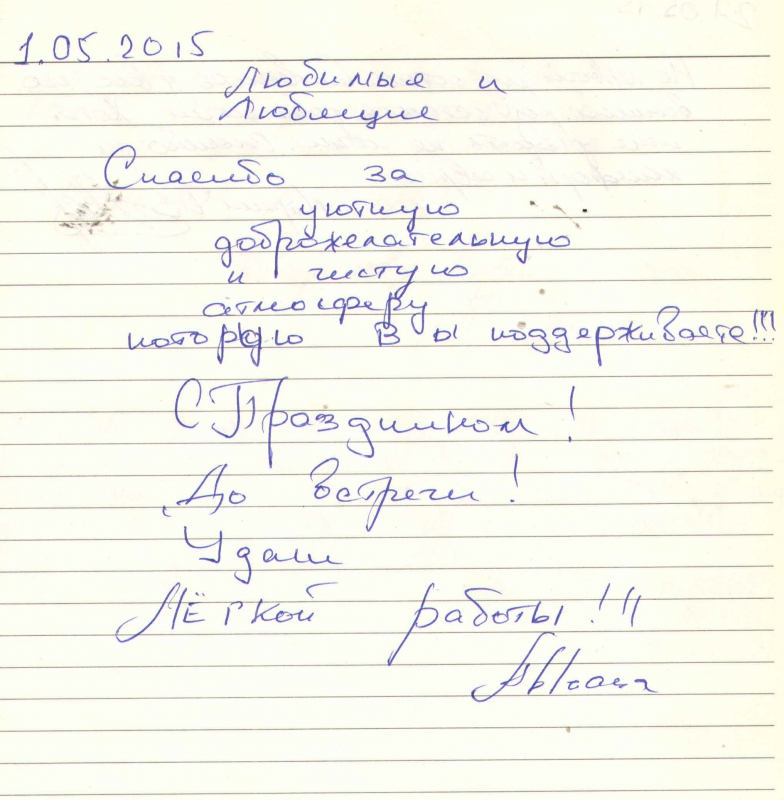 1.05.2015
Любимые и
Любящие
Спасибо за
уютную
доброжелательную
и чистую
атмосферу
которую Вы поддерживаете!!!
С Праздником!
До встречи!
Удачи
Лёгкой работы!!!